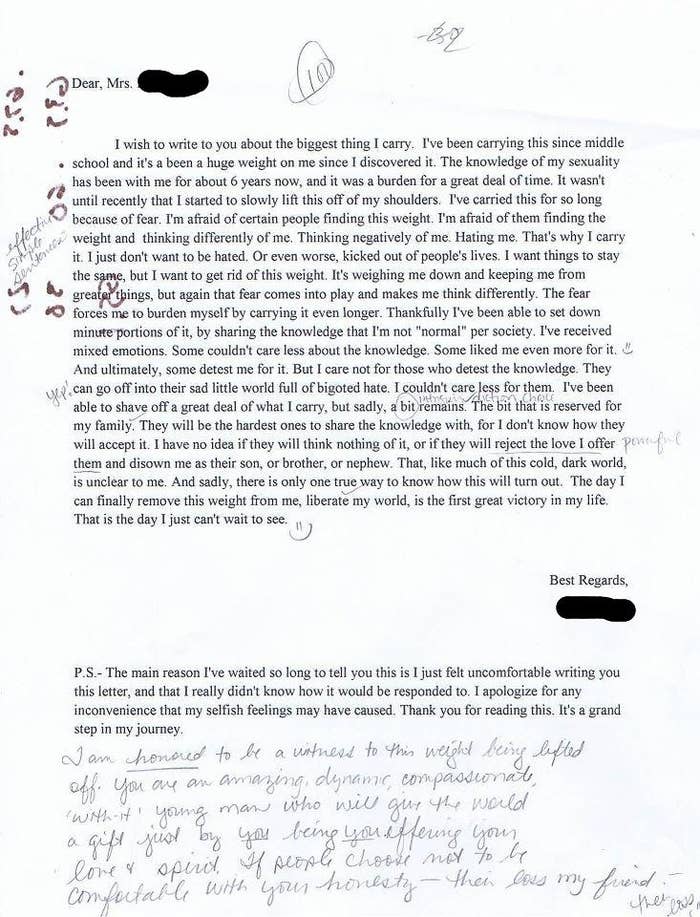 100
Dear, Mrs.
I wish to write to you about the biggest thing I carry.  I've been carrying this since middle
school and it's a been a huge weight on me since I discovered it. The knowledge of my sexuality
has been with me for about 6 years now, and it was a burden for a great deal of time. It wasn't
until recently that I started to slowly lift this off of my shoulders.  I've carried this for so long
because of fear. I'm afraid of certain people finding this weight. I'm afraid of them finding the
weight and  thinking differently of me. Thinking negatively of me. Hating me. That's why I carry
effective
simple
sentences
it. I just don't want to be hated. Or even worse, kicked out of people's lives. I want things to stay
the same, but I want to get rid of this weight. It's weighing me down and keeping me from
greater things, but again that fear comes into play and makes me think differently. The fear
forces me to burden myself by carrying it even longer. Thankfully I've been able to set down
minute portions of it, by sharing the knowledge that I'm not "normal" per society. I've received
mixed emotions. Some couldn't care less about the knowledge. Some liked me even more for it.
And ultimately, some detest me for it. But I care not for those who detest the knowledge. They
yep! can go off into their sad little world full of bigoted hate. I couldn't care less for them.  I've been
diction choice
able to shave off a great deal of what I carry, but sadly, a bit remains. The bit that is reserved for
my family. They will be the hardest ones to share the knowledge with, for I don't know how they
will accept it. I have no idea if they will think nothing of it, or if they will reject the love I offer powerful
them and disown me as their son, or brother, or nephew. That, like much of this cold, dark world,
is unclear to me. And sadly, there is only one true way to know how this will turn out.  The day I
can finally remove this weight from me, liberate my world, is the first great victory in my life.
That is the day I just can't wait to see.
Best Regards,
P.S.- The main reason I've waited so long to tell you this is I just felt uncomfortable writing you
this letter, and that I really didn't know how it would be responded to. I apologize for any
inconvenience that my selfish feelings may have caused. Thank you for reading this. It's a grand
step in my journey.
I am honored to be a witness to this weight being lifted
off. You are an amazing, dynamic, compassionate,
'with-it' young man who will give the world
a gift just by you being you offering your
love & spirit. If people choose not to be
comfortable with your honesty – their loss my friend. –
their loss.